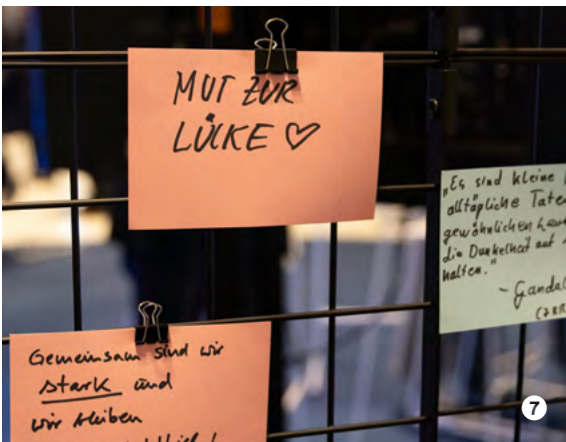 MUT ZUR
LÜCKE ♡
„Es sind kleine
alltägliche Taten
gewöhnlichen
die Dunkelheit auf
halten."
- Gandal
Gemeinsam sind wir
stark und
wir bleiben
7